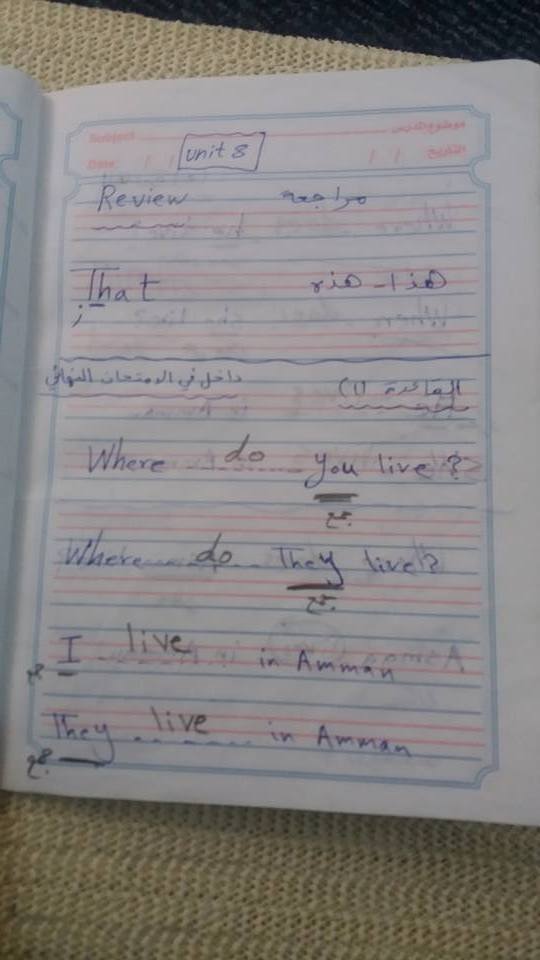 Subject موضوع الدرس
Date: / / / / التاريخ
Unit 8
Review مراجعه
That هذا - هذه
القاعدة (1) داخل في الامتحان النهائي
Where do you live?
جمع
Where do They live?
جمع
I live in Amman
جمع
They live in Amman
جمع